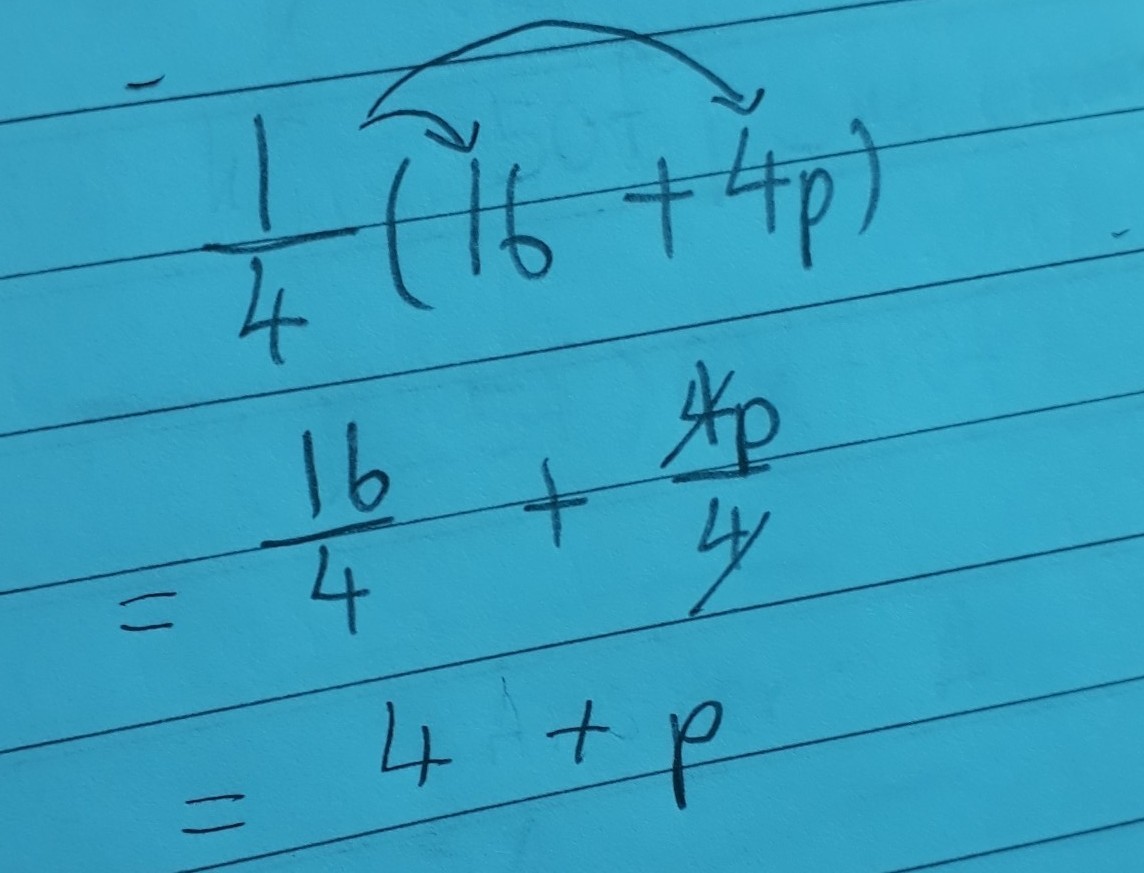 1/4 (16 + 4p)
= 16/4 + 4p/4
= 4 + p